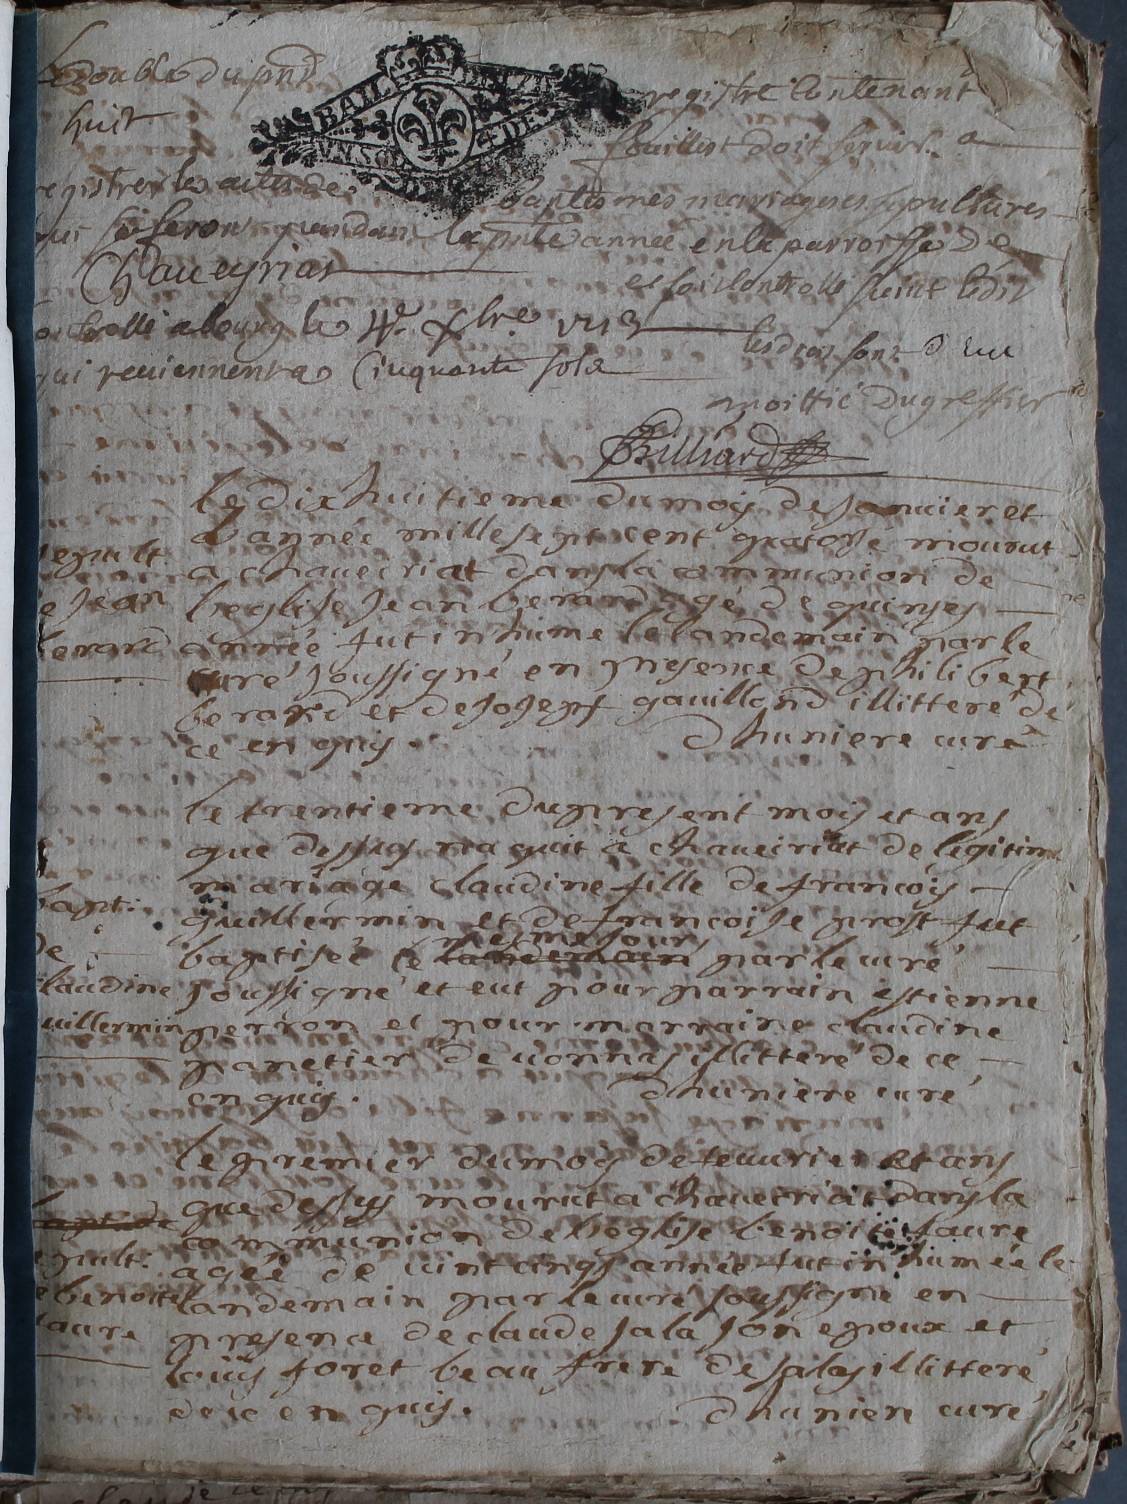 Le double du pnt registre contenant
huit feuillest doit servir a
registrer les actes de baptesmes mariages sepultures
qui se feront pendant la pnte année en la parroisse de
Chaveyriat
et soi controlle suivt ledit
controllé a bourg le 4e xbre 1713
les droi sont d'un
qui reviennent a Cinquante sols
moittié du greffier
Billiard
le dix huitieme du moy de Janvier et
an année mille sept cent quatorse mourut
sepult. a chaveiriat dans la communion de
de Jean l'eglise Jean berard agé de quinses
berard année fut inhume le landemain par le
curé soussigné en presence de philibert
berard et de Joseph gauilland illitteré de
ce enquis dhuniere curé
le trentieme du present mois et ans
que dessus naquit à chaveiriat de legitime
mariage claudine fille de françois
bapt: guillermin et de françoise prost fut
mesme jour
de baptisée le landemain par le curé
claudine soussigné et eut pour parrain estienne
guillermin perron et pour marraine claudine
panetier de vonnas illitteré de ce
enquis. dhuniere curé
le premier du moy de feuurier et ans
que dessus mourut a chaveiriat dans la
bapt de communion de l'eglise benoite faure
sepult: agée de vint cinqs année fut inhumée le
de benoite landemain par le curé soussigné en
faure presence de claude Jalason epoux et
louis foret beau frere desdits illitteré
de ce enquis. dhuniere curé